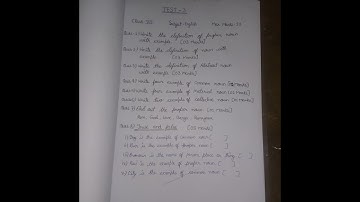 TEST-3
Class-III Subject-English Max Marks-
Ques-1) Write the definition of proper noun
with example (02 Marks)
Ques-2) Write the definition of noun with
example (02 Marks)
Ques-3) Write the definition of Material noun
with example. (02 Marks)
Ques-4) Write four example of Common noun (02 Marks)
Ques-5) Write four example of Material noun (02 Marks)
Ques-6) Write two example of collective noun (01 Marks)
Ques-7) Find out the proper noun (02 Marks)
Ram, book, Ganga,
Ques-8) True and False (05 Marks)
i) Dog is the example of common noun ( )
ii) Ram is the example of proper noun ( )
iii) is the name of person, place or thing ( )
iv) is the example of proper noun ( )
v) City is the example of common noun ( )